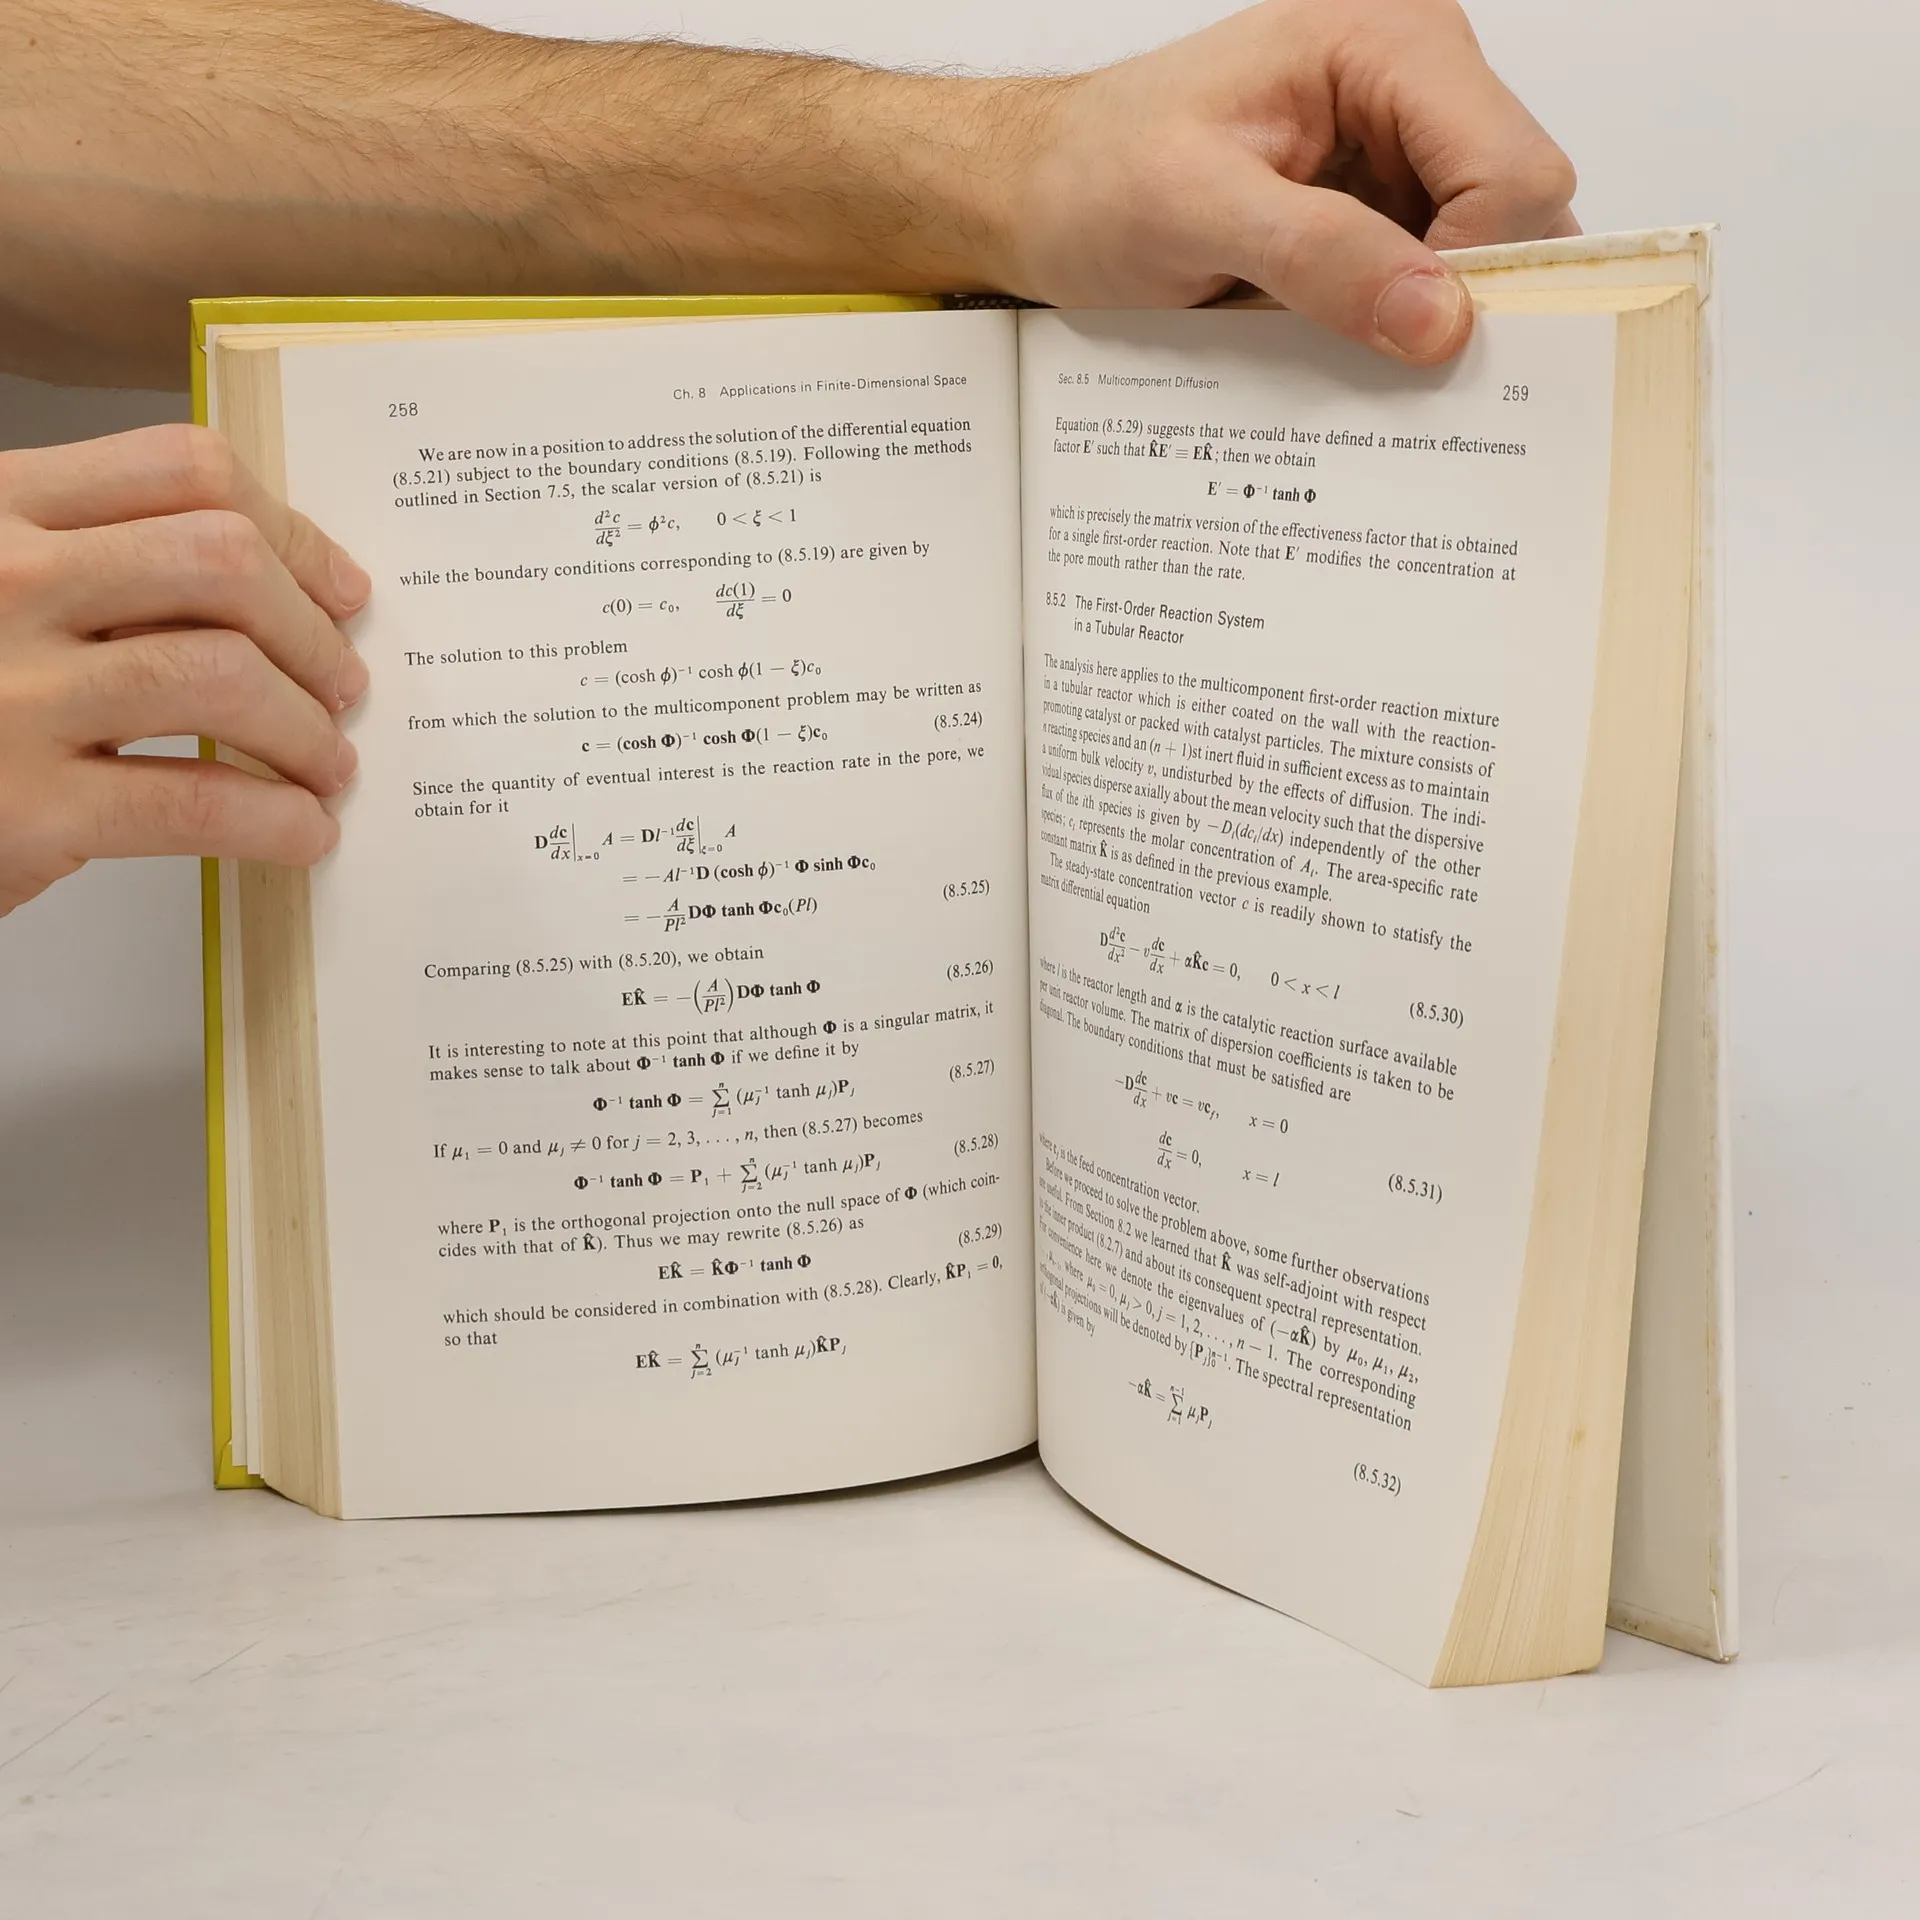 258
Ch. 8 Applications in Finite-Dimensional Space
We are now in a position to address the solution of the differential equation
(8.5.21) subject to the boundary conditions (8.5.19). Following the methods
outlined in Section 7.5, the scalar version of (8.5.21) is
d²c/dξ² = ϕ²c, 0 < ξ < 1
while the boundary conditions corresponding to (8.5.19) are given by
c(0) = c₀, dc(1)/dξ = 0
The solution to this problem
c = (cosh ϕ)⁻¹ cosh ϕ(1 − ξ)c₀
from which the solution to the multicomponent problem may be written as
c = (cosh Φ)⁻¹ cosh Φ(1 − ξ)c₀ (8.5.24)
Since the quantity of eventual interest is the reaction rate in the pore, we
obtain for it
D dc/dx|ₓ₌₀ A = Dl⁻¹ dc/dξ|_ξ=0 A
= −Al⁻¹D (cosh ϕ)⁻¹ Φ sinh Φc₀
= −A/Pl² DΦ tanh Φc₀(Pl) (8.5.25)
Comparing (8.5.25) with (8.5.20), we obtain
EK̂ = −(A/Pl²)DΦ tanh Φ (8.5.26)
It is interesting to note at this point that although Φ is a singular matrix, it
makes sense to talk about Φ⁻¹ tanh Φ if we define it by
Φ⁻¹ tanh Φ = Σⁿⱼ₌₁ (μⱼ⁻¹ tanh μⱼ)Pⱼ (8.5.27)
If μ₁ = 0 and μⱼ ≠ 0 for j = 2, 3, . . . , n, then (8.5.27) becomes
Φ⁻¹ tanh Φ = P₁ + Σⁿⱼ₌₂ (μⱼ⁻¹ tanh μⱼ)Pⱼ (8.5.28)
where P₁ is the orthogonal projection onto the null space of Φ (which coin-
cides with that of K̂). Thus we may rewrite (8.5.26) as
EK̂ = K̂Φ⁻¹ tanh Φ (8.5.29)
which should be considered in combination with (8.5.28). Clearly, K̂P₁ = 0,
so that
EK̂ = Σⁿⱼ₌₂ (μⱼ⁻¹ tanh μⱼ)K̂Pⱼ
Sec. 8.5 Multicomponent Diffusion
259
Equation (8.5.29) suggests that we could have defined a matrix effectiveness
factor E′ such that K̂E′ ≡ EK̂; then we obtain
E′ = Φ⁻¹ tanh Φ
which is precisely the matrix version of the effectiveness factor that is obtained
for a single first-order reaction. Note that E′ modifies the concentration at
the pore mouth rather than the rate.
8.5.2 The First-Order Reaction System
in a Tubular Reactor
The analysis here applies to the multicomponent first-order reaction mixture
in a tubular reactor which is either coated on the wall with the reaction-
promoting catalyst or packed with catalyst particles. The mixture consists of
n reacting species and an (n + 1)st inert fluid in sufficient excess as to maintain
a uniform bulk velocity v, undisturbed by the effects of diffusion. The indi-
vidual species disperse axially about the mean velocity such that the dispersive
flux of the ith species is given by −Dᵢ(dcᵢ/dx) independently of the other
species; cᵢ represents the molar concentration of Aᵢ. The area-specific rate
constant matrix K̂ is as defined in the previous example.
The steady-state concentration vector c is readily shown to statisfy the
matrix differential equation
D d²c/dx² − v dc/dx + αK̂c = 0, 0 < x < l (8.5.30)
where l is the reactor length and α is the catalytic reaction surface available
per unit reactor volume. The matrix of dispersion coefficients is taken to be
diagonal. The boundary conditions that must be satisfied are
−D dc/dx + vc = vc_f, x = 0
dc/dx = 0, x = l (8.5.31)
where c_f is the feed concentration vector.
Before we proceed to solve the problem above, some further observations
are useful. From Section 8.2 we learned that K̂ was self-adjoint with respect
to the inner product (8.2.7) and about its consequent spectral representation.
For convenience here we denote the eigenvalues of (−αK̂) by μ₀, μ₁, μ₂,
. . . , μₙ₋₁, where μ₀ = 0, μⱼ > 0, j = 1, 2, . . . , n − 1. The corresponding
orthogonal projections will be denoted by {Pⱼ}₀ⁿ⁻¹. The spectral representation
of (−αK̂) is given by
−αK̂ = Σⁿ⁻¹ⱼ₌₁ μⱼPⱼ (8.5.32)